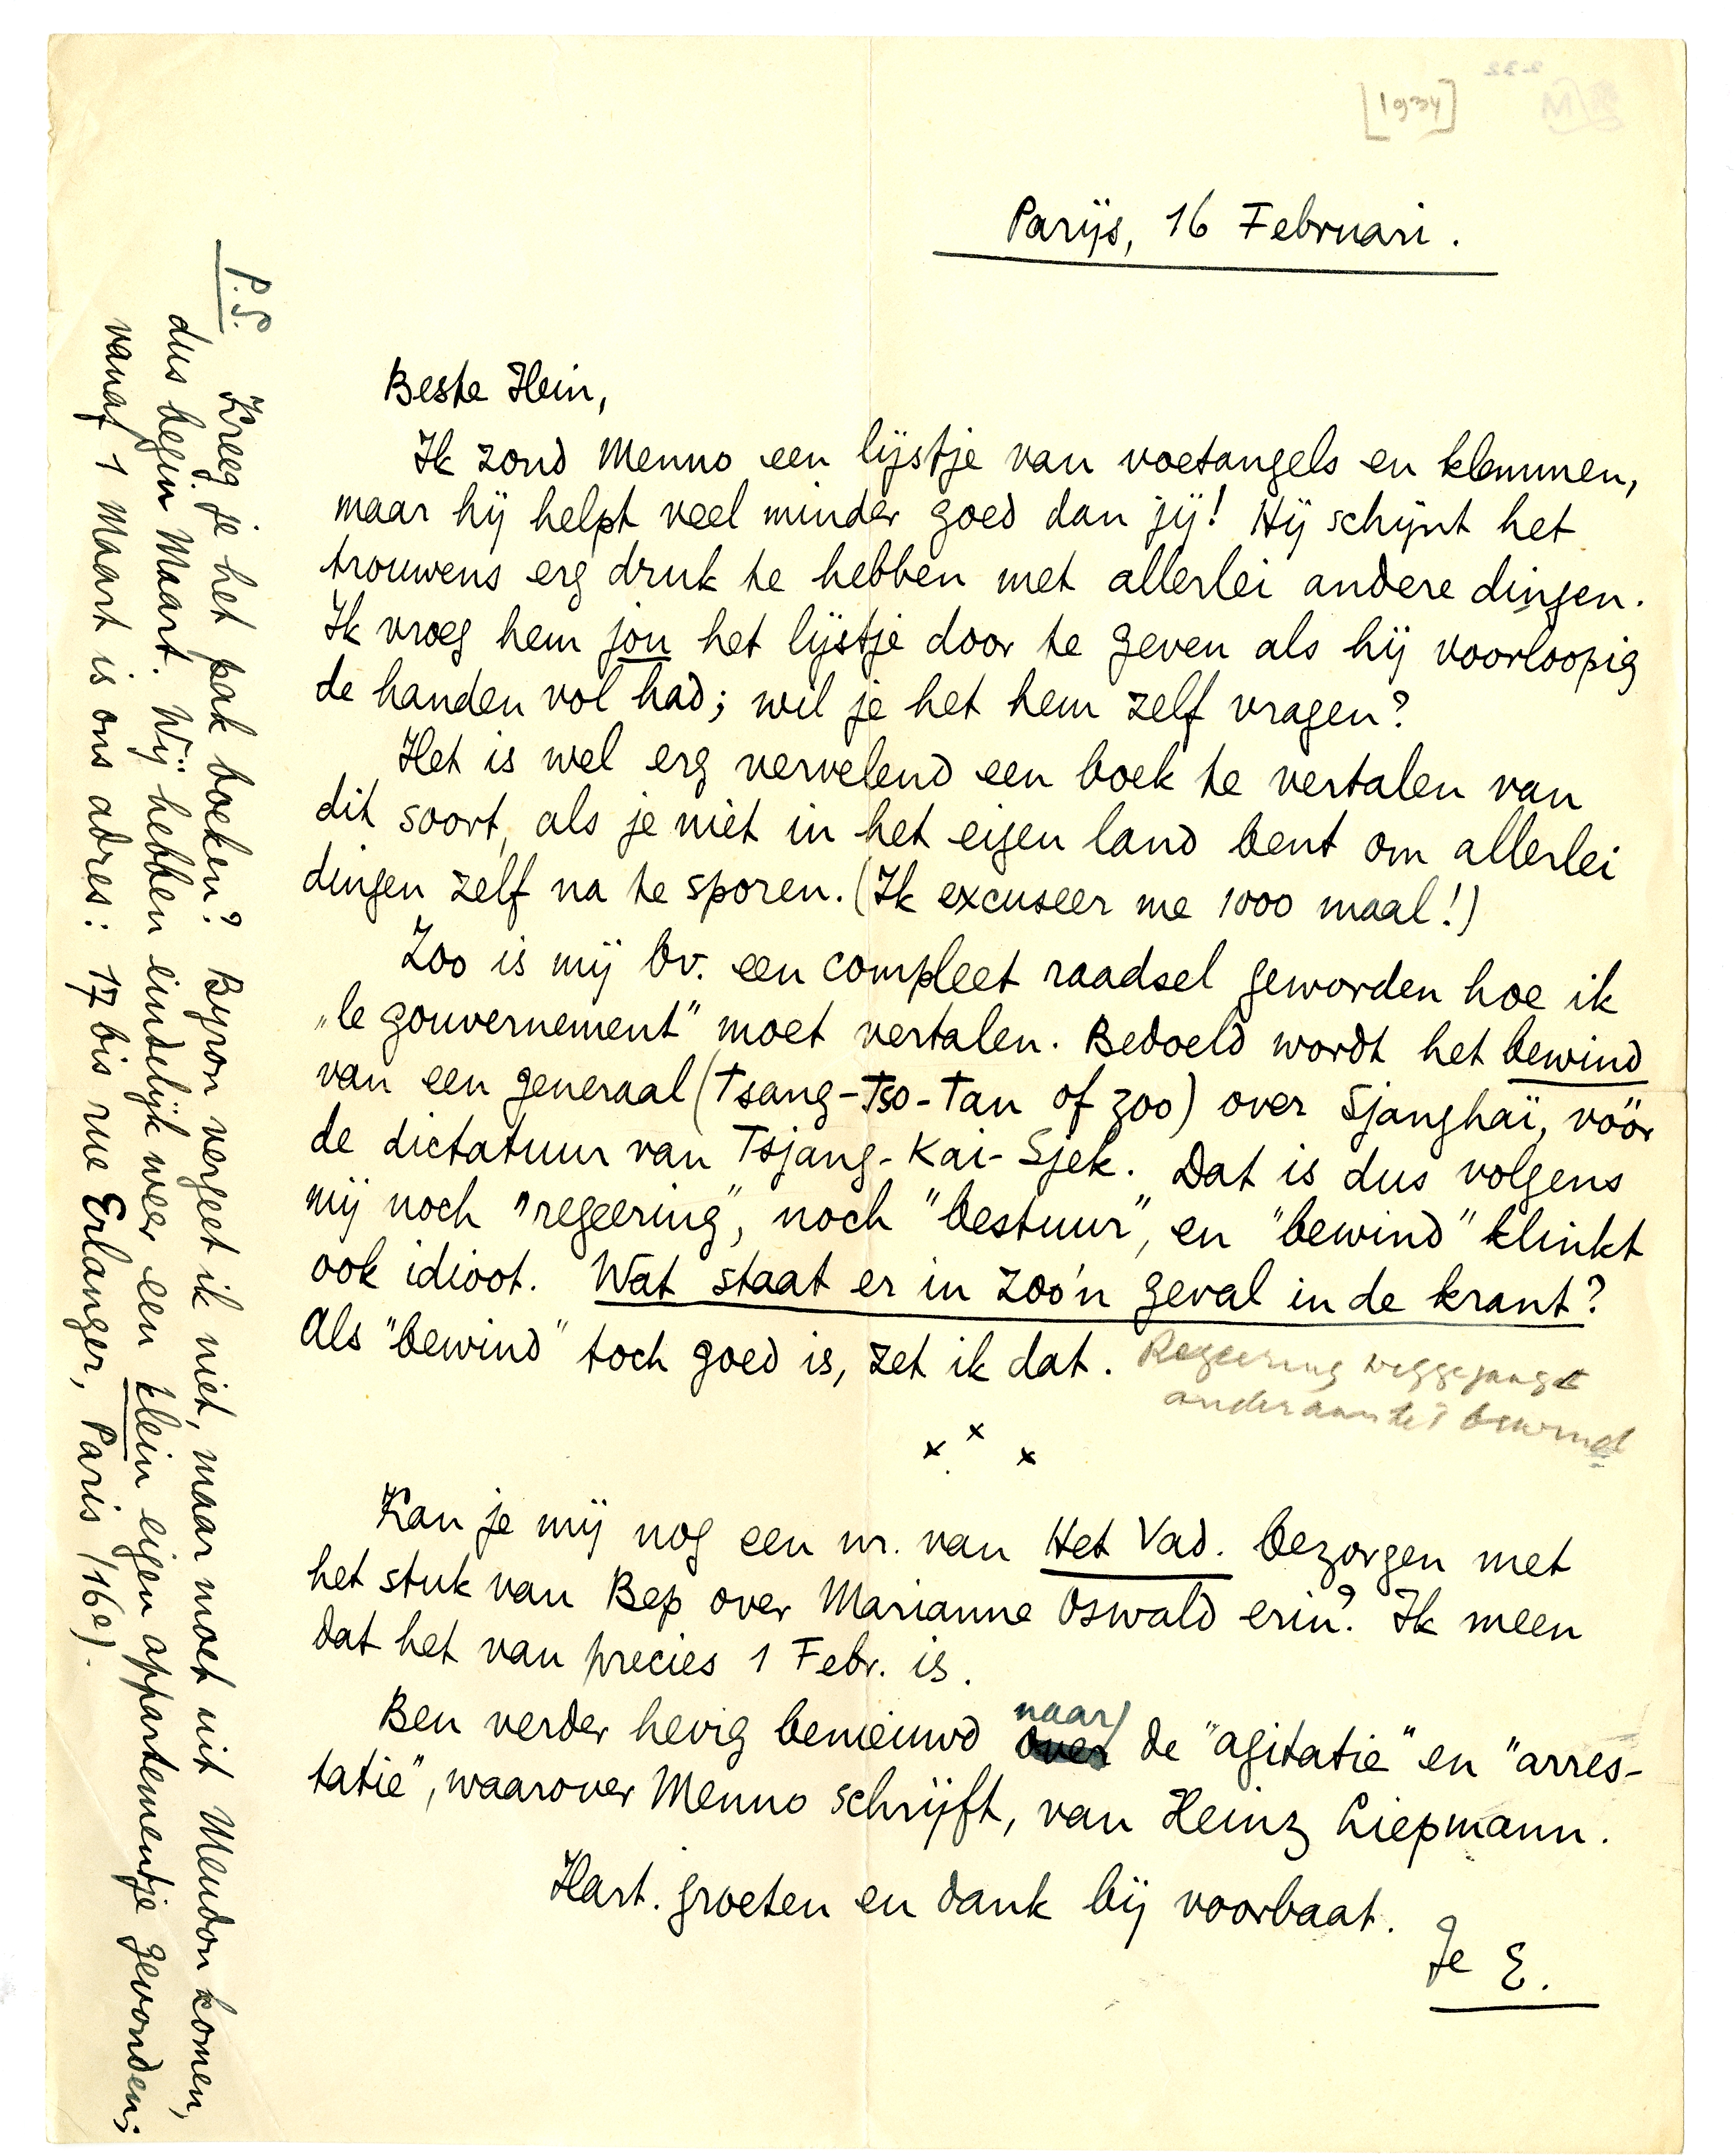 [1934]
Parijs, 16 Februari.
Beste Hein,
Ik zond Menno een lijstje van voetangels en klemmen,
maar hij helpt veel minder goed dan jij! Hij schijnt het
trouwens erg druk te hebben met allerlei andere dingen.
Ik vroeg hem jou het lijstje door te geven als hij voorloopig
de handen vol had; wil je het hem zelf vragen?
Het is wel erg vervelend een boek te vertalen van
dit soort, als je niet in het eigen land bent om allerlei
dingen zelf na te sporen. (Ik excuseer me 1000 maal!)
Zoo is mij bv. een compleet raadsel geworden hoe ik
„le gouvernement" moet vertalen. Bedoeld wordt het bewind
van een generaal (Tsang-Tso-Tan of zoo) over Sjanghaï, vóór
de dictatuur van Tsjang-Kai-Sjek. Dat is dus volgens
mij noch "regeering", noch "bestuur", en "bewind" klinkt
ook idioot. Wat staat er in zoo'n geval in de krant?
Als "bewind" toch goed is, zet ik dat. Regeering weggejaagd
ander aan het bewind
x x x
Kan je mij nog een nr. van Het Vad. bezorgen met
het stuk van Bep over Marianne Oswald erin? Ik meen
dat het van precies 1 Febr. is.
Ben verder hevig benieuwd naar de "agitatie" en "arres-
tatie", waarover Menno schrijft, van Heinz Liepmann.
Hart. groeten en dank bij voorbaat.
Je E.
P.S. Kreeg je het pak boeken? Byron vergeet ik niet, maar moet uit Meudon komen,
dus begin Maart. Wij hebben eindelijk weer een klein eigen appartementje gevonden;
vanaf 1 Maart is ons adres: 17 bis rue Erlanger, Paris (16e).